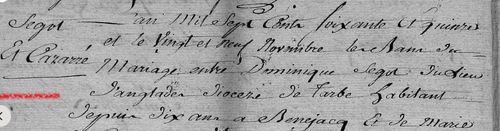 Segot
Et Cazarré
L'an Mil Sept Cents soixante Et quinze
et le Vingt et neuf Novembre le Bans du
Mariage entre Dominique Segot du Lieu
D'anglades dioceze de Tarbe habitant
depuis dix ans a Benejacq Et de Marie